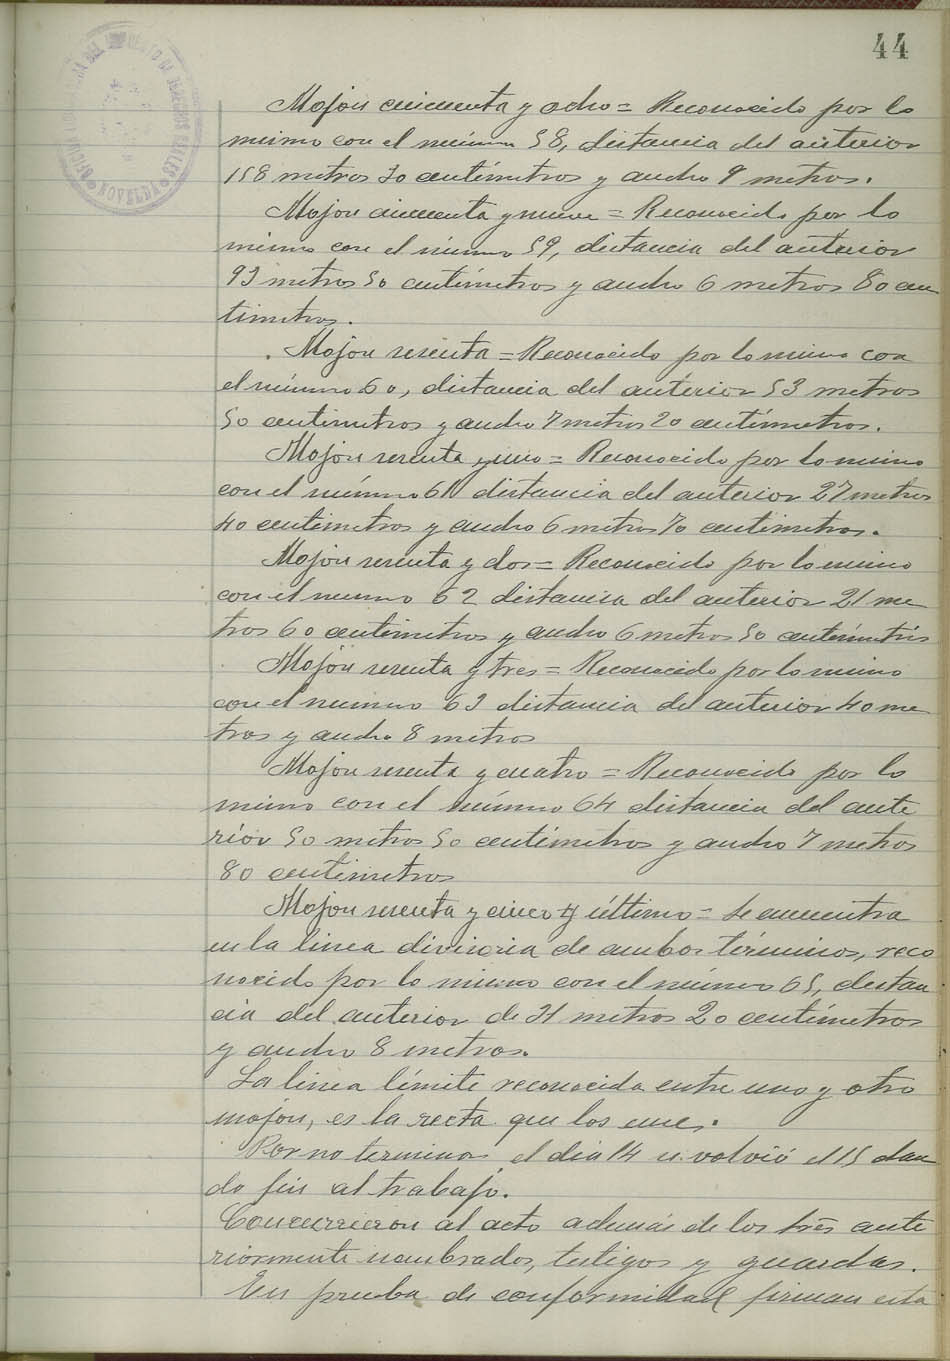 44
Mojon cincuenta y ocho = Reconocido por lo
mismo con el número 58, distancia del anterior
158 metros 30 centímetros y ancho 9 metros.
Mojon cincuenta y nueve = Reconocido por lo
mismo con el número 59, distancia del anterior
93 metros 50 centímetros y ancho 6 metros 80 cen
timetros.
Mojon sesenta = Reconocido por lo mismo con
el número 60, distancia del anterior 53 metros
50 centimetros y ancho 7 metros 20 centímetros.
Mojon sesenta y uno = Reconocido por lo mismo
con el número 61 distancia del anterior 27 metros
40 centimetros y ancho 6 metros 70 centimetros.
Mojon sesenta y dos = Reconocido por lo mismo
con el numero 62 distancia del anterior 21 me
tros 60 centimetros y ancho 6 metros 50 centimetros
Mojon sesenta y tres = Reconocido por lo mismo
con el numero 63 distancia del anterior 40 me
tros y ancho 8 metros
Mojon sesenta y cuatro = Reconocido por lo
mismo con el número 64 distancia del ante
rior 50 metros 50 centímetros y ancho 7 metros
80 centimetros
Mojon sesenta y cinco y último = Se encuentra
en la linea divisoria de ambos términos, reco
nocido por lo mismo con el número 65, distan
cia del anterior de 21 metros 20 centímetros
y ancho 8 metros.
La linea límite reconocida entre uno y otro
mojón, es la recta que los une.
Por no terminar el dia 14 se volvió el 15 dan
do fin al trabajo.
Concurrieron al acto además de los tres ante
riormente nombrados, testigos y guardas.
En prueba de conformidad firman esta